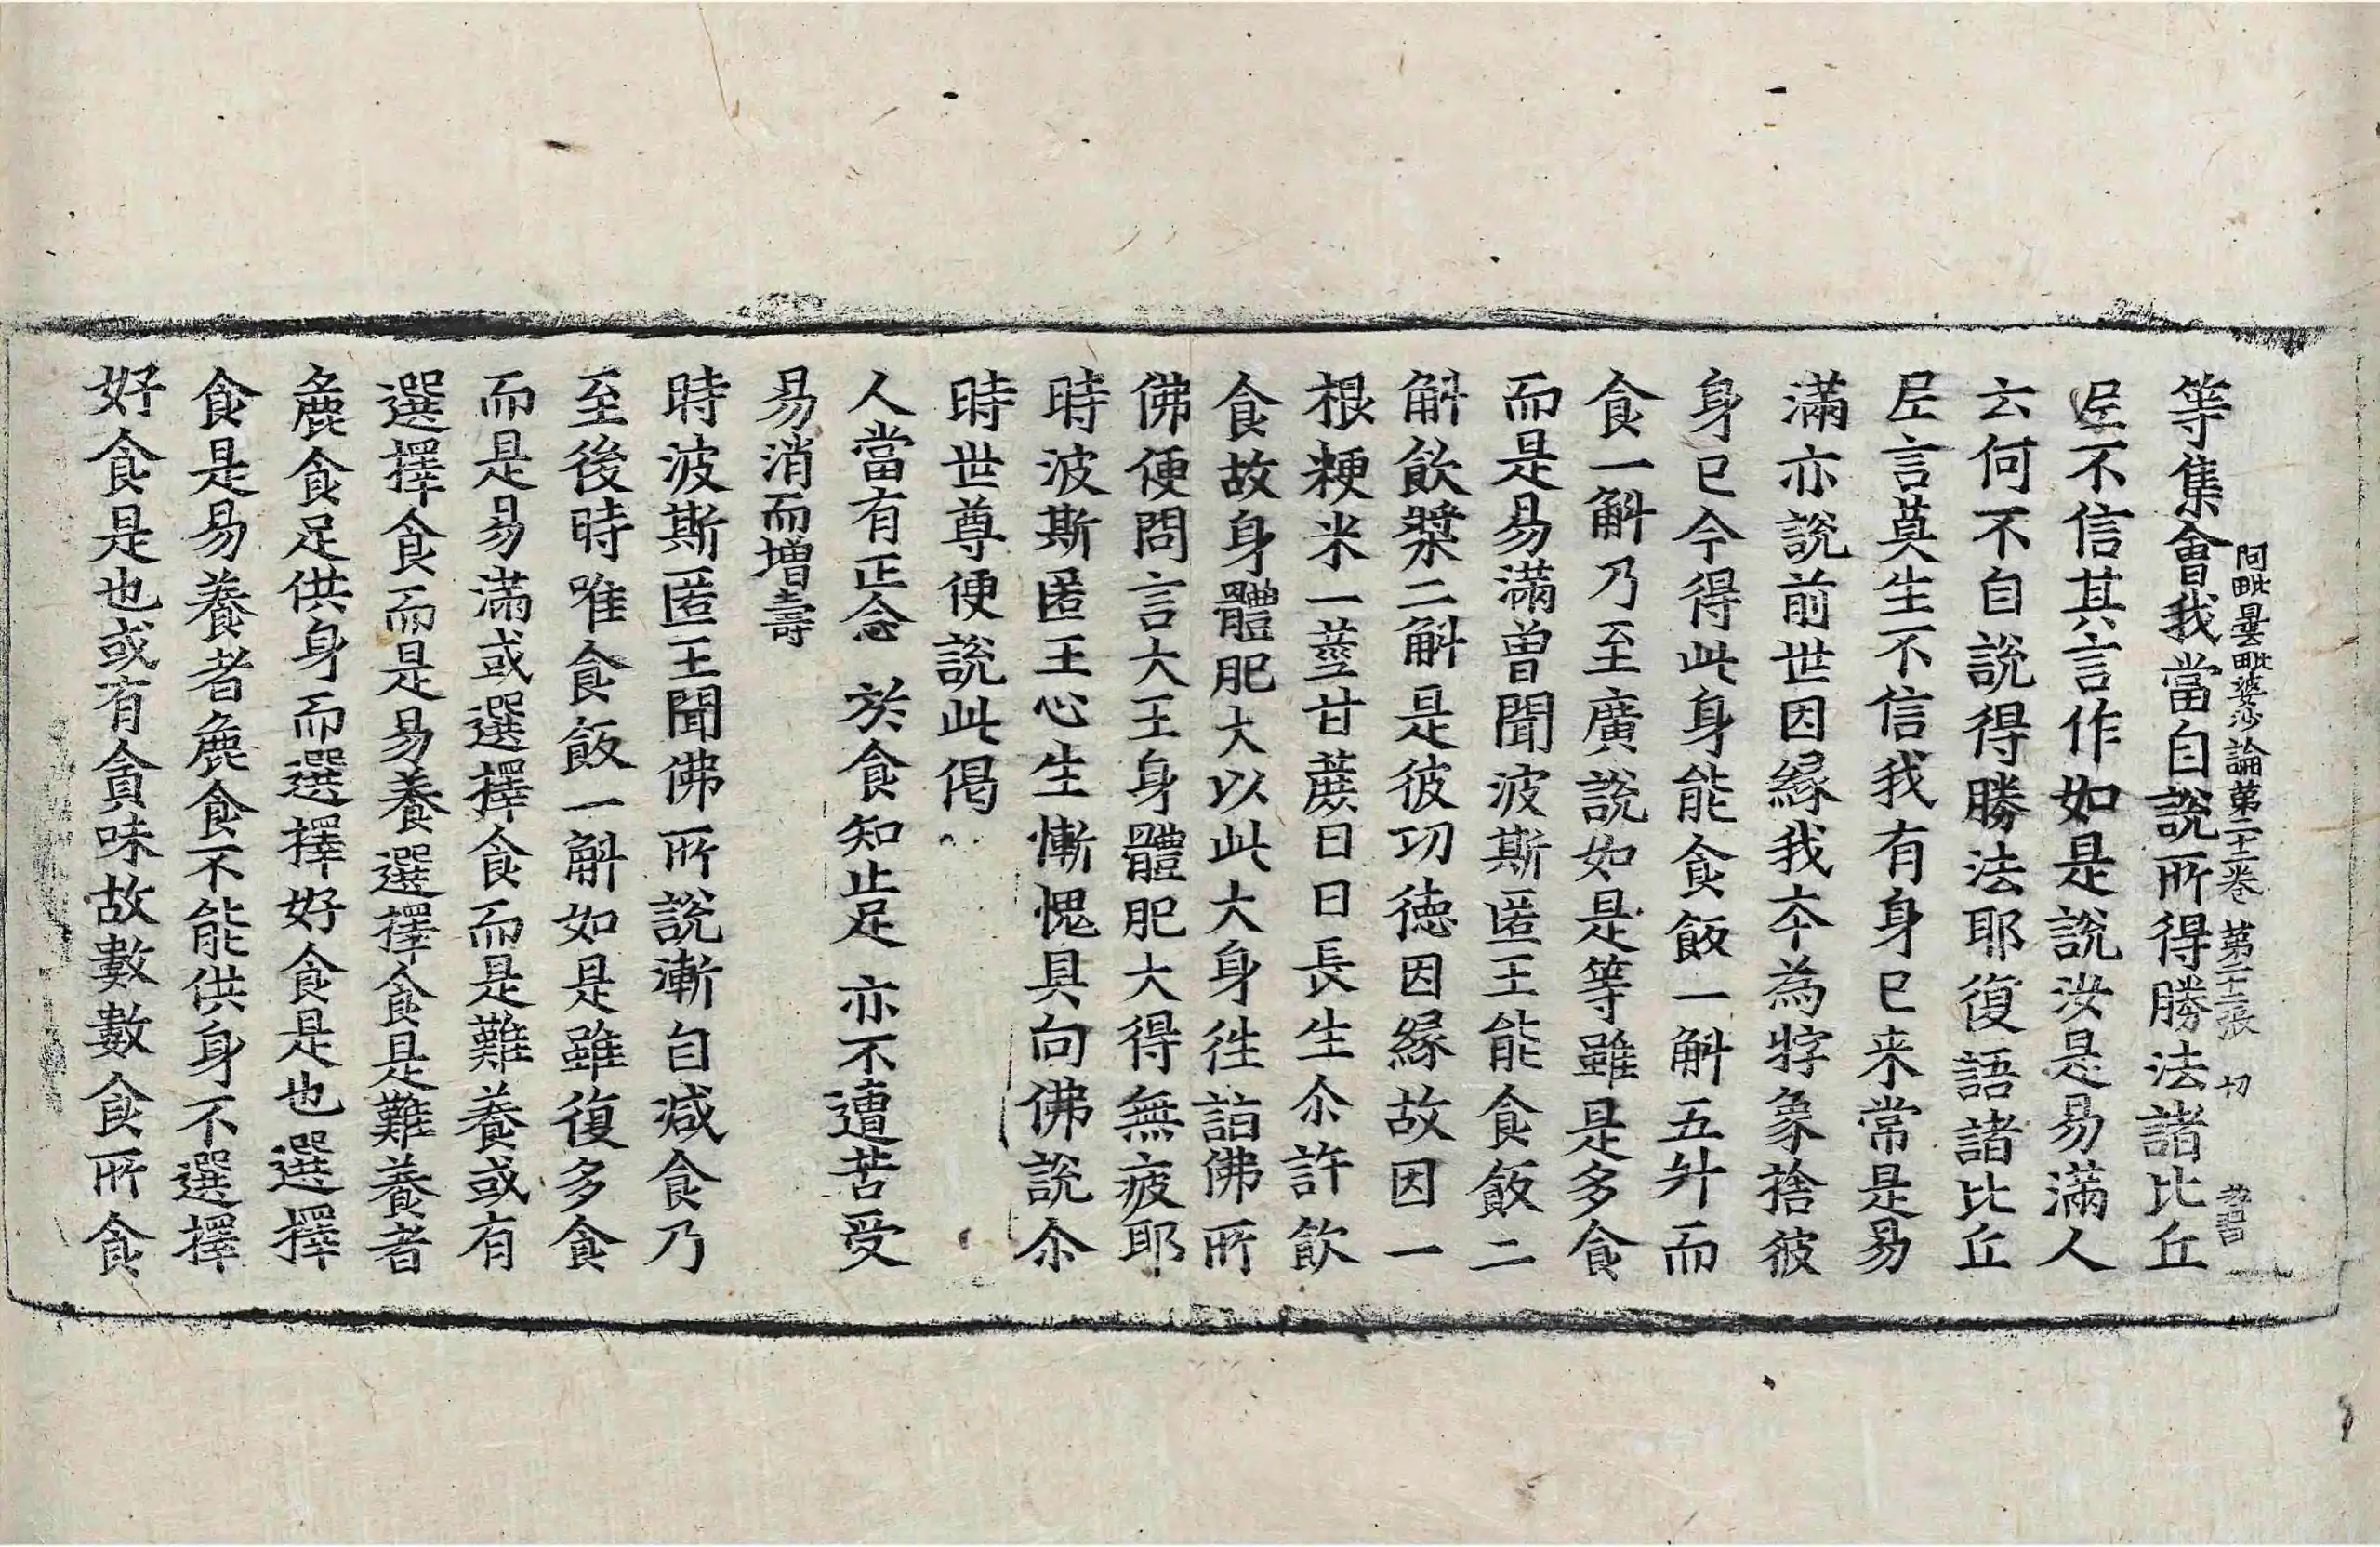 阿毗曇毗婆沙論第二十二卷 第二十二張 切
等集會我當自說所得勝法諸比丘
𡰱不信其言作如是說汝是易滿人
云何不自說得勝法耶復語諸比丘
𡰱言莫生不信我有身已来常是易
滿亦說前世因緣我夲為牸象捨彼
身已今得此身能食飯一斛五升而
食一斛乃至廣說如是等雖是多食
而是易滿曾聞波斯匿王能食飯二
斛飲漿二斛是彼功德因緣故因一
根粳米一莖甘蔗日日長生尒許飲
食故身體肥大以此大身徃詣佛所
佛便問言大王身體肥大得無疲耶
時波斯匿王心生慚愧具向佛說尒
時世尊便說此偈
人當有正念 於食知止足 亦不遭苦受
易消而增壽
時波斯匿王聞佛所說漸自减食乃
至後時唯食飯一斛如是雖復多食
而是易滿或選擇食而是難養或有
選擇食而是易養選擇食是難養者
麁食足供身而選擇好食是也選擇
食是易養者麁食不能供身不選擇
好食是也或有貪味故數數食所食